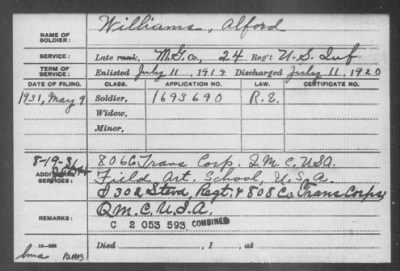 NAME OF SOLDIER: Williams, Alford
SERVICE: Late rank, M.G. Co, 24 Reg't U.S. Inf
TERM OF SERVICE: Enlisted July 11, 1919 Discharged July 11, 1920
DATE OF FILING. CLASS. APPLICATION NO. LAW. CERTIFICATE NO.
1931, May 9 Soldier, 1693690 R.E.
Widow,
Minor,
8-19-31 806 Co Trans Corp. Q M C. USA.
ADDITIONAL SERVICES: Field Art. School, U.S.A.
302 Stevd, Regt. & 808 Co Trans Corps
REMARKS: Q.M.C. U.S.A.
C 2 053 593 COMBINED
Died , 1 , at
bma